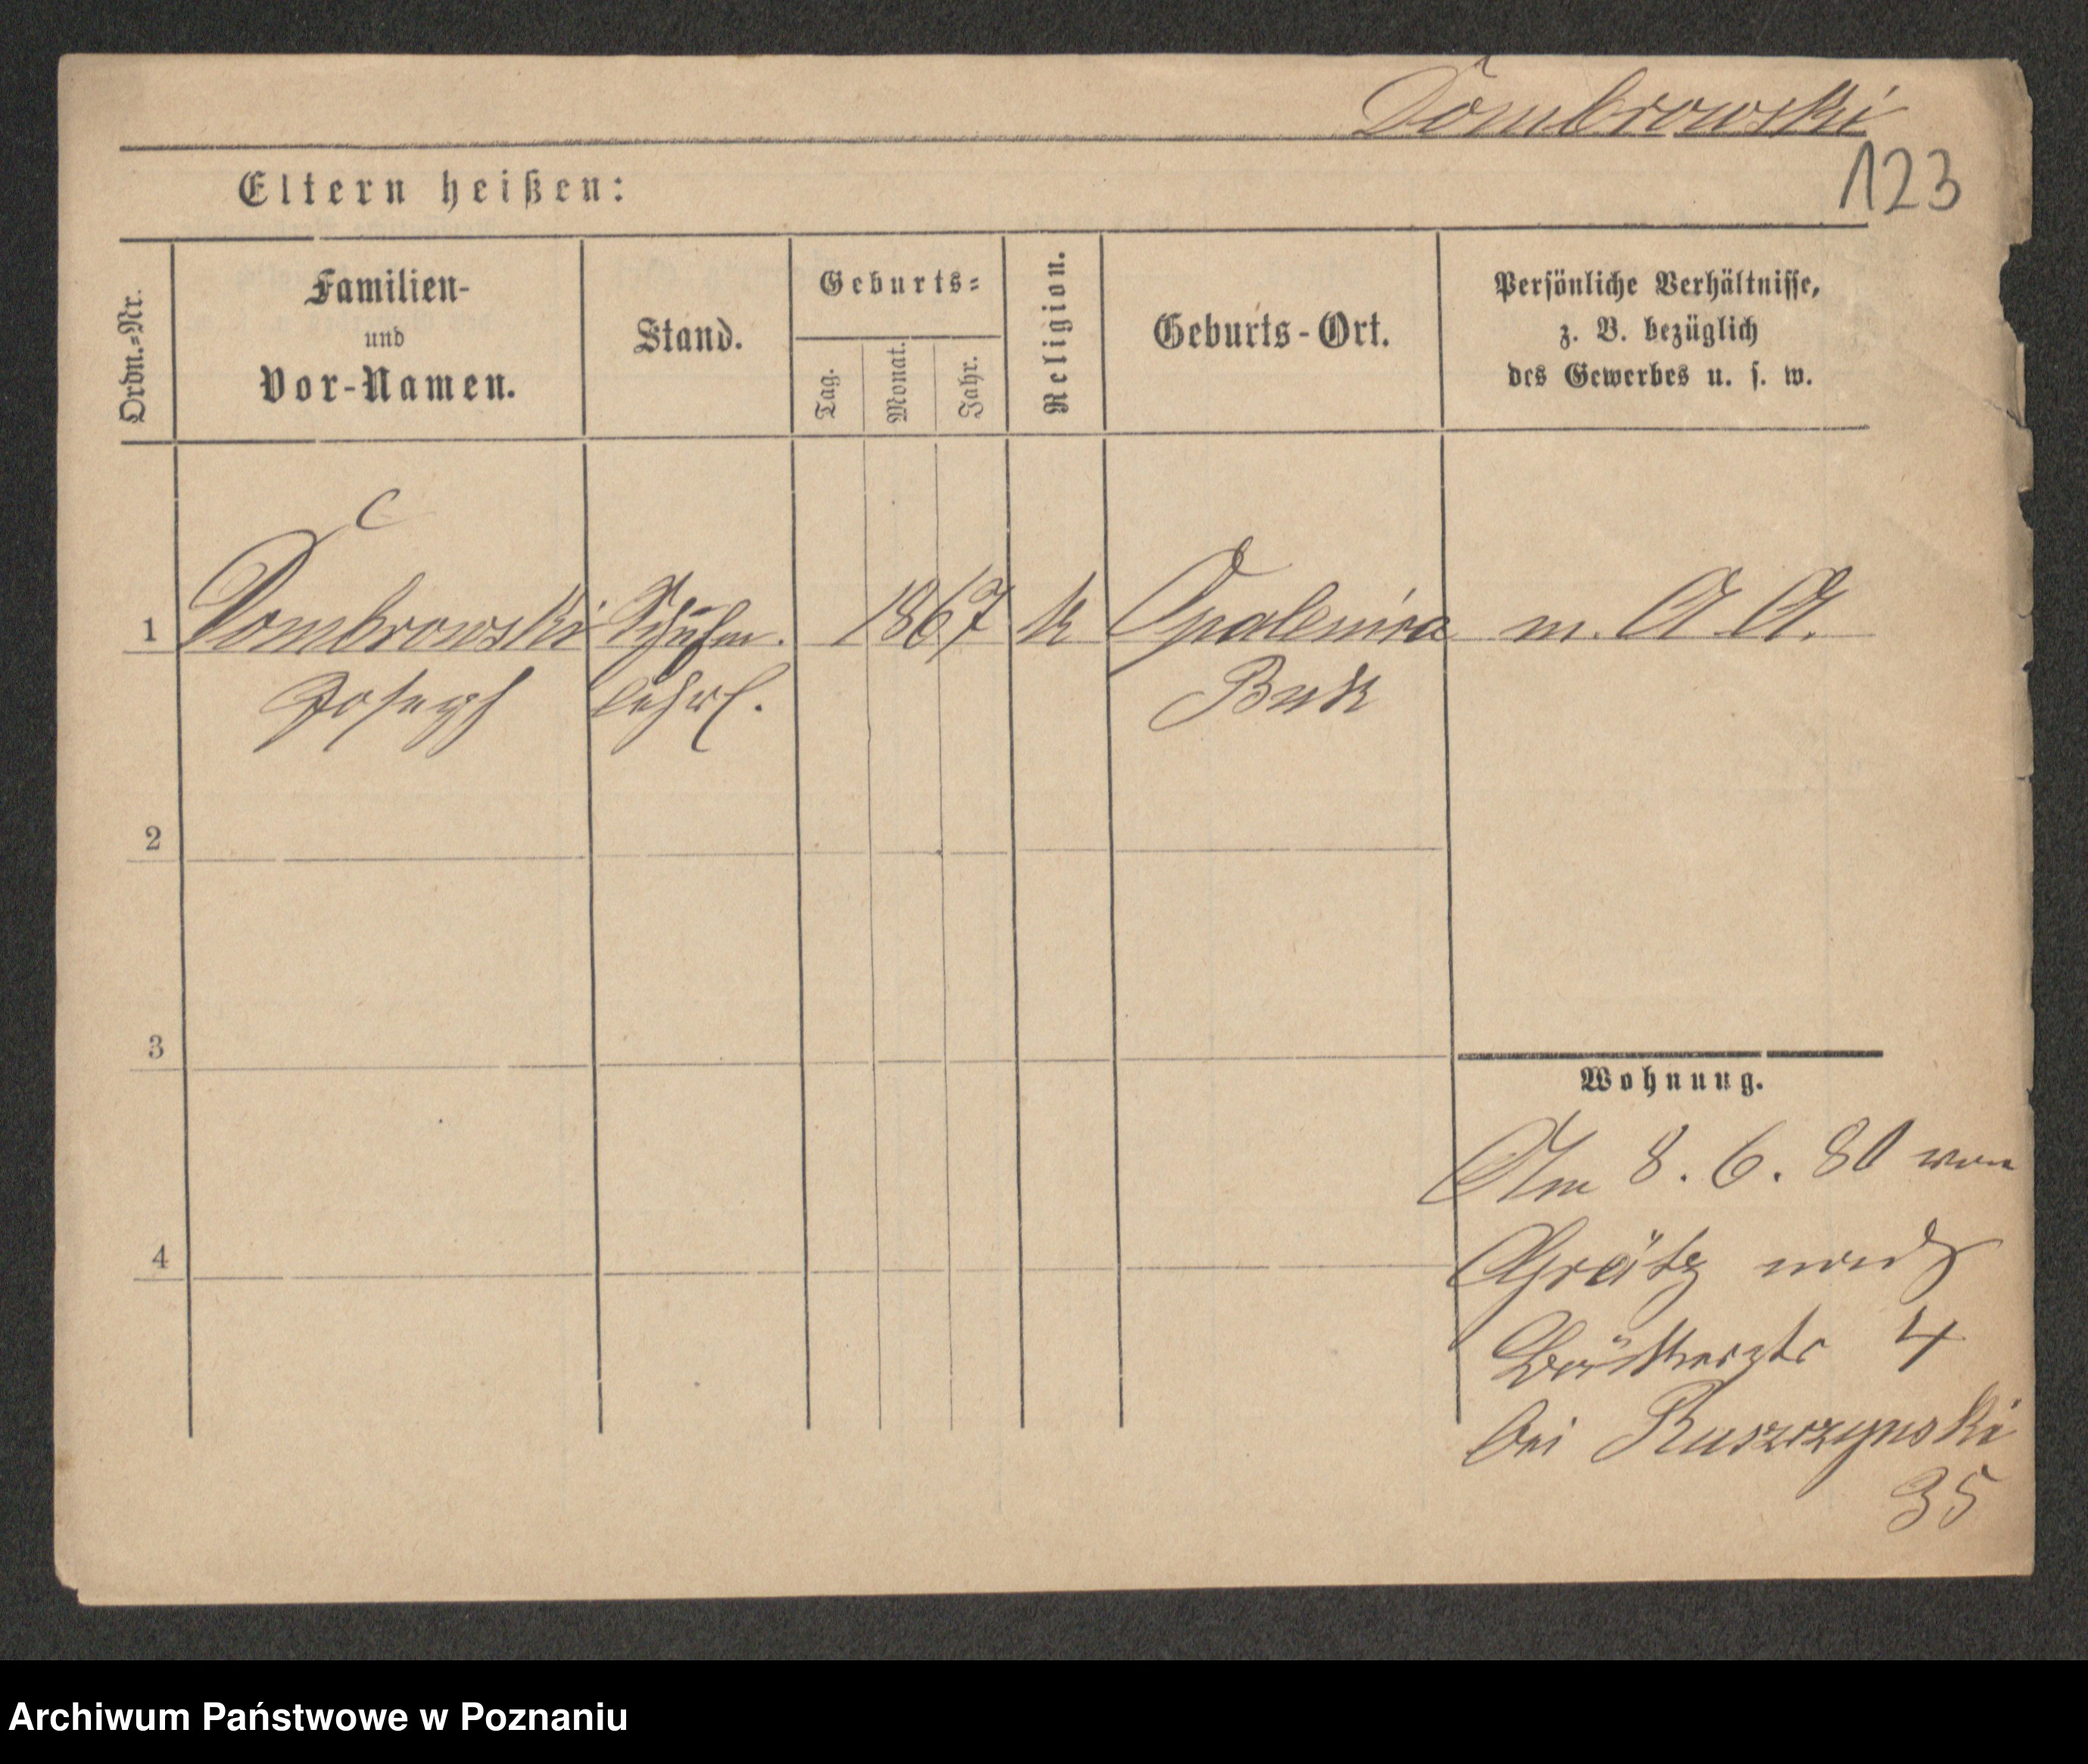 Dombrowski
123
Eltern heißen:
Ordn.-Nr.
Familien-
und
Vor-Namen.
Stand.
Geburts-
Tag.
Monat.
Jahr.
Religion.
Geburts-Ort.
Persönliche Verhältnisse,
z. B. bezüglich
des Gewerbes u. s. w.
C
1 Dombrowski Schuhm. 1867 k Opalenica m. A A.
Joseph lehrl. Buk
2
3
Wohnung.
Am 8. 6. 80 von
4
Grätz nach
4
bei Ruszczynski
35
Archiwum Państwowe w Poznaniu